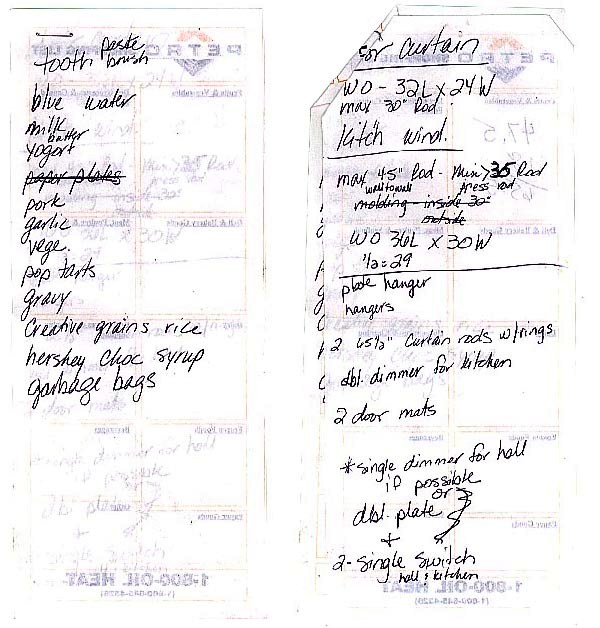 paste
tooth brush
blue water
milk
batter
yogort
paper plates
pork
garlic
vege.
pop tarts
gravy
Creative grains rice
hershey choc syrup
garbage bags
for Curtain
WO - 32L x 24W
max 30" Rod.
kitch wind.
max 45" Rod - Min > 35 Rod
wall to wall press rod
molding - inside 30"
outside
WO 36L x 30W
1/2 = 29
plate hanger
hangers
2 45 1/2" Curtain rods w/rings
dbl. dimmer for kitchen
2 door mats
*single dimmer for hall
if possible
or
dbl. plate
+
2 - single switch
hall & kitchen
1-800-OIL HEAT
1-800-OIL HEAT